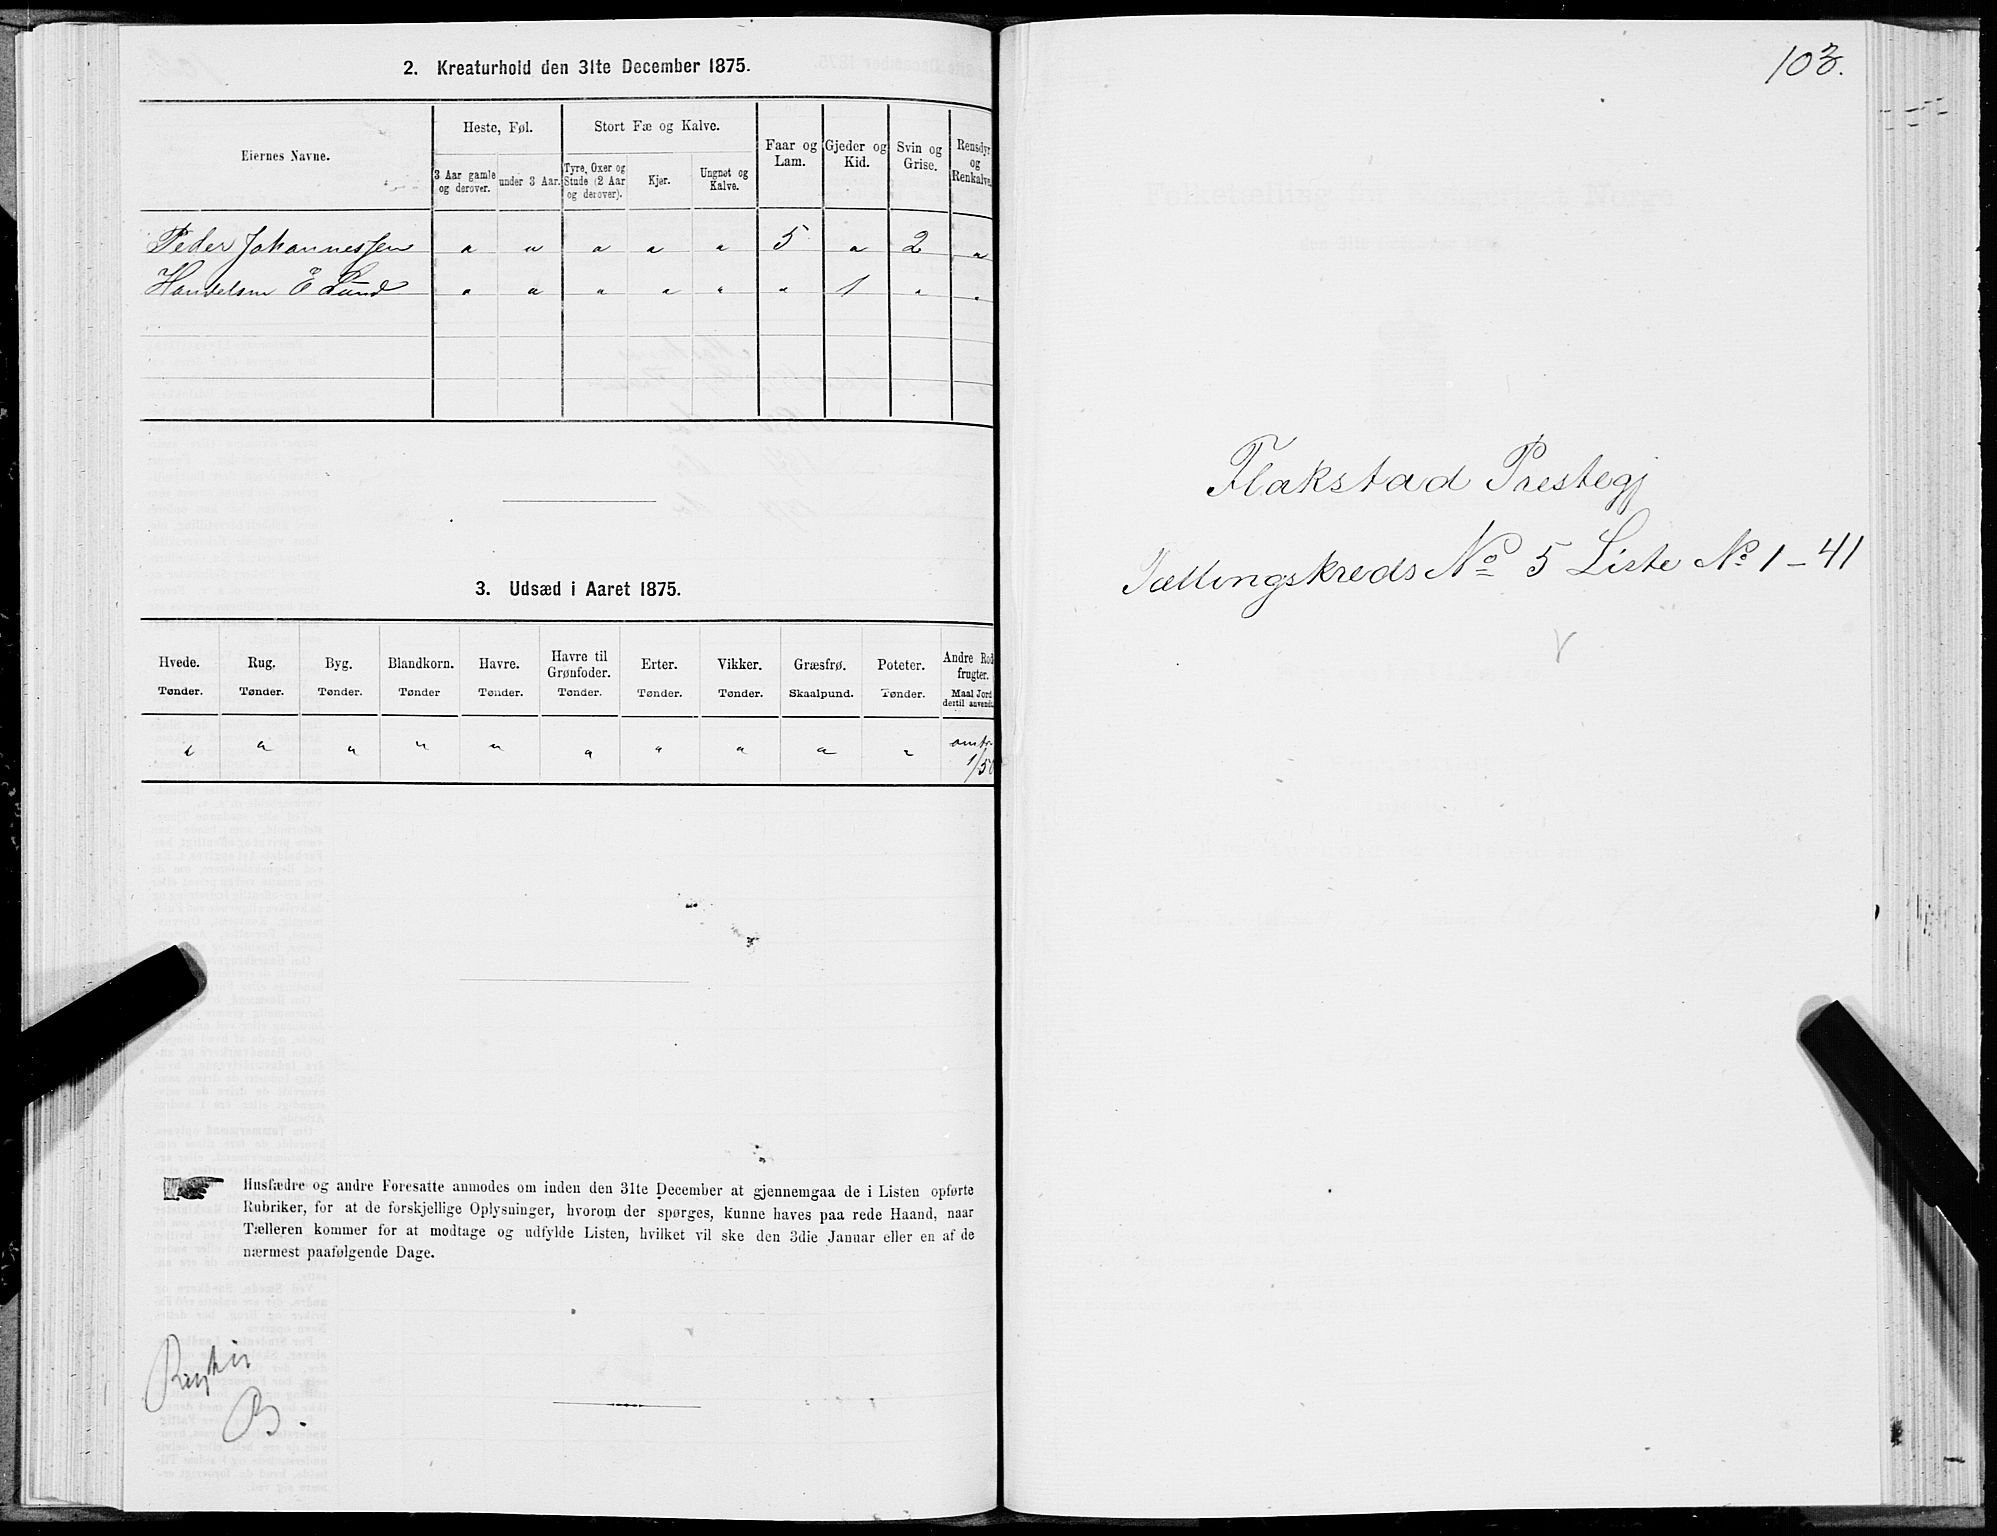 2. Kreaturhold den 31te December 1875.
Eiernes Navne.
Heste, Føl.
Stort Fæ og Kalve.
Faar og Lam.
Gjeder og Kid.
Svin og Grise.
Rensdyr og Renkalve.
3 Aar gamle og derover.
under 3 Aar.
Tyre, Oxer og Stude (2 Aar og derover).
Kjør.
Ungnøt og Kalve.
Peder Johannessen " " " " " 5 " 2 "
Handelsm E Lund " " " " " " 1 " "
3. Udsæd i Aaret 1875.
Hvede. Rug. Byg. Blandkorn. Havre. Havre til Grønfoder. Erter. Vikker. Græsfrø. Poteter. Andre Rodfrugter.
Tønder. Tønder. Tønder. Tønder Tønder. Tønder. Tønder. Tønder. Skaalpund. Tønder. Maal Jord dertil anvendt.
" " " " " " " " " " omtr 1/50
Husfædre og andre Foresatte anmodes om inden den 31te December at gjennemgaa de i Listen opførte
Rubriker, for at de forskjellige Oplysninger, hvorom der spørges, kunne haves paa rede Haand, naar
Tælleren kommer for at modtage og udfylde Listen, hvilket vil ske den 3die Januar eller en af de
nærmest paafølgende Dage.
B.
103.
Flakstad Prestegj
Tællingskreds No 5 Liste No 1 - 41